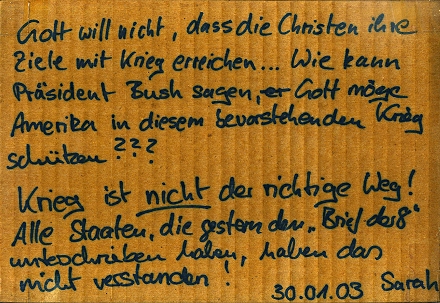 Gott will nicht, dass die Christen ihre
Ziele mit Krieg erreichen... Wie kann
Präsident Bush sagen, er Gott möge
Amerika in diesem bevorstehenden Krieg
schützen ???
Krieg ist nicht der richtige Weg!
Alle Staaten, die gestern den „Brief der 8"
unterschrieben haben, haben das
nicht verstanden!
30.01.03 Sarah